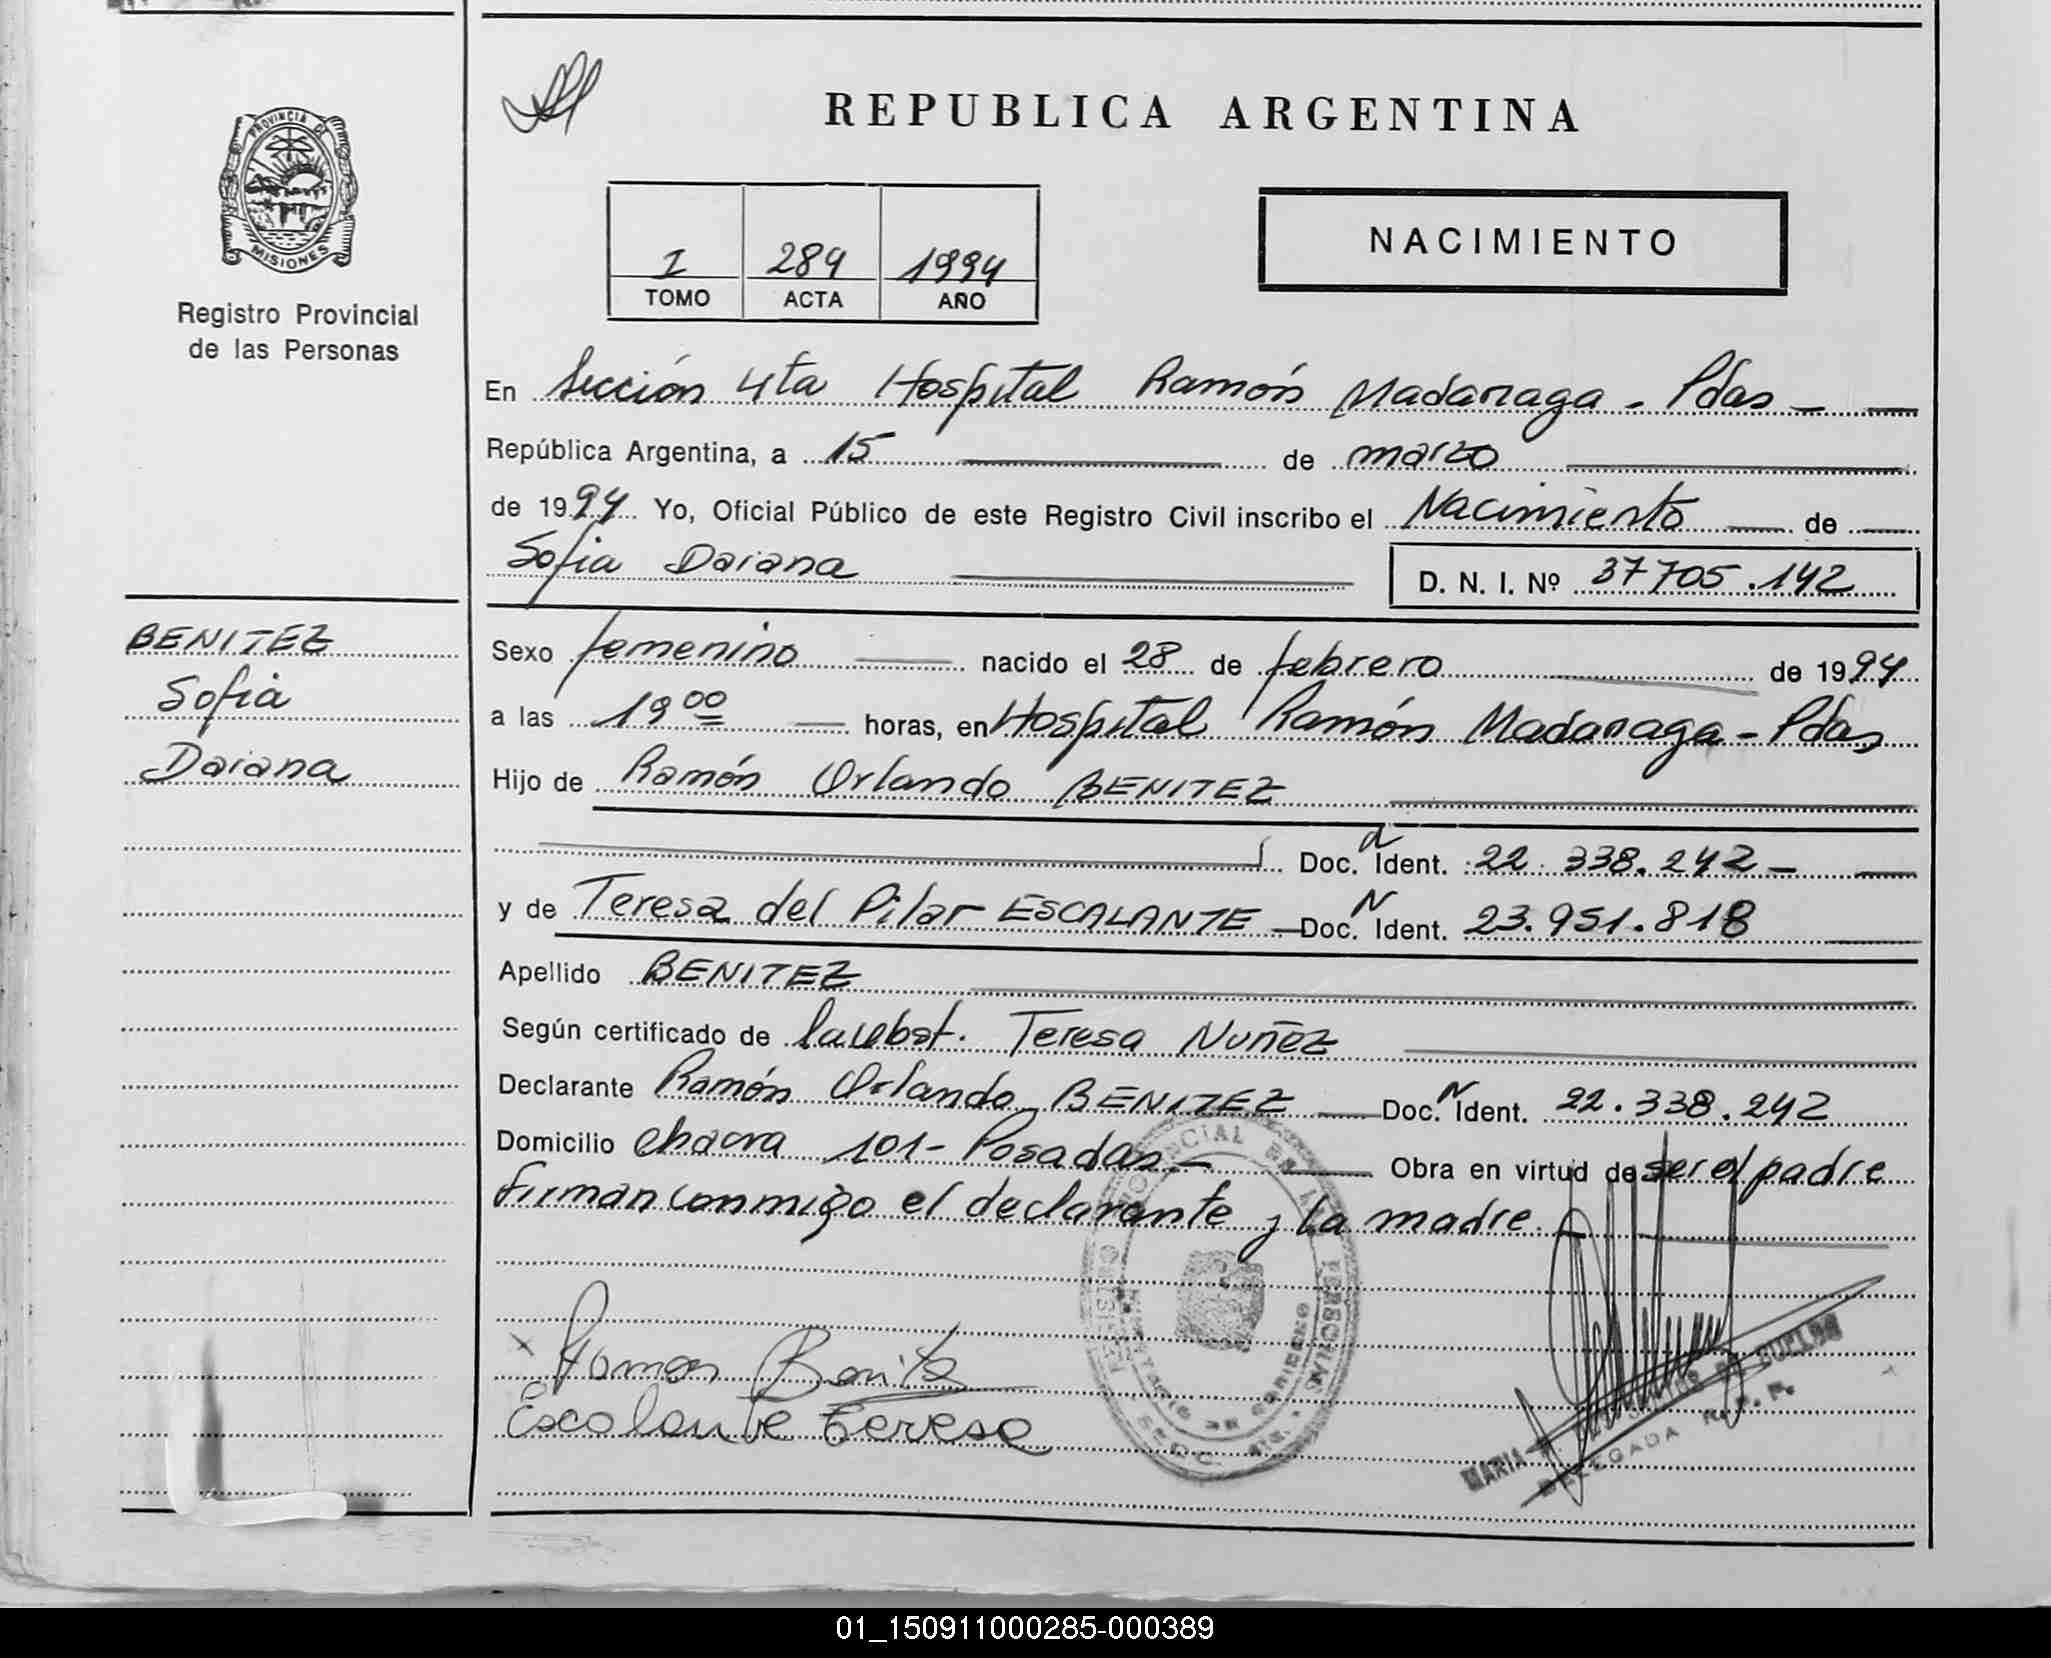 PROVINCIA DE
MISIONES
Registro Provincial
de las Personas
REPUBLICA ARGENTINA
I 289 1994
TOMO ACTA AÑO
NACIMIENTO
En Sección 4ta Hospital Ramón Madariaga - Pdas -
República Argentina, a 15 de marzo
de 1994 Yo, Oficial Público de este Registro Civil inscribo el Nacimiento de
Sofia Daiana D. N. I. Nº 37705.142
BENITEZ
Sofia
Daiana
Sexo femenino nacido el 28 de febrero de 1994
a las 19 00 horas, en Hospital Ramón Madariaga - Pdas
Hijo de Ramón Orlando BENITEZ
Doc. Ident. 22.338.242 -
y de Teresa del Pilar ESCALANTE - Doc. N Ident. 23.951.818
Apellido BENITEZ
Según certificado de Teresa NUÑEZ
Declarante Ramón Orlando BENITEZ Doc. N Ident. 22.338.242
Domicilio chacra 101 - Posadas - Obra en virtud de ser el padre
firman conmigo el declarante y la madre.
x Ramon Benitez
Escalante Teresa
MARIA
DELEGADA R. P. P.
01_150911000285-000389